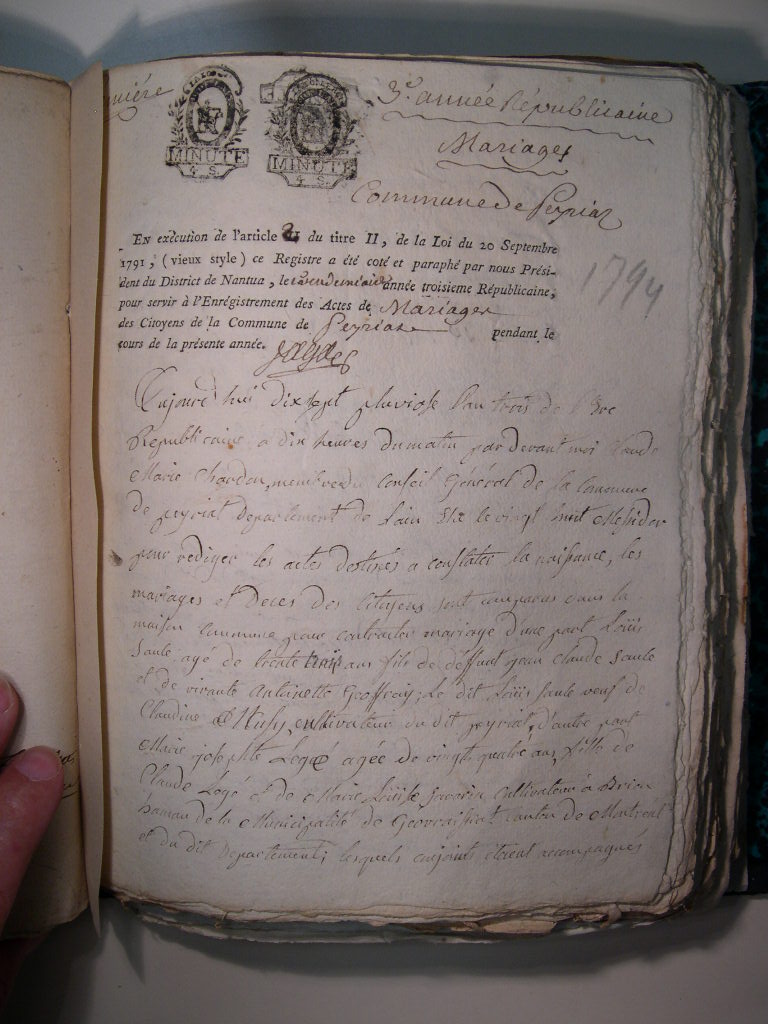 3e. année Républicaine
MINUTE
4 S.
MINUTE
4 S.
Mariages
Commune de Peyriat
1794
EN exécution de l'article II du titre II, de la Loi du 20 Septembre
1791, (vieux style) ce Registre a été coté et paraphé par nous Prési-
dent du District de Nantua, le vendemiaire année troisieme Républicaine,
pour servir à l'Enrégistrement des Actes de Mariages
des Citoyens de la Commune de Peyriat pendant le
cours de la présente année.
Aujourd'hui dixsept pluviose l'an trois de l'Ere
Republicaine a dix heures du matin par devant moi Claude
Marie Chardon, membre du Conseil Général de la Commune
de peyriat Departement de l'ain élu le vingt huit Messidor
pour rediger les actes destinés a constater la naissance, les
mariages et Deces des Citoyens sont comparus dans la
maison commune pour contracter mariage d'une part Loüis
Saule agé de trente trois ans fils de deffunt jean Claude Saule
et de vivante Antoinette Geoffray; Le dit Loüis Saule veuf de
Claudine cultivateur du dit peyriat, d'autre part
Marie josephte Logé agée de vingt quatre ans, fille de
Claude Logé et de Marie Loüise Savarin cultivateur à Brion
hameau de la Municipalité de Geovraissiat canton de Montreal
et du dit Departement; lesquels conjoints étoient accompagnés